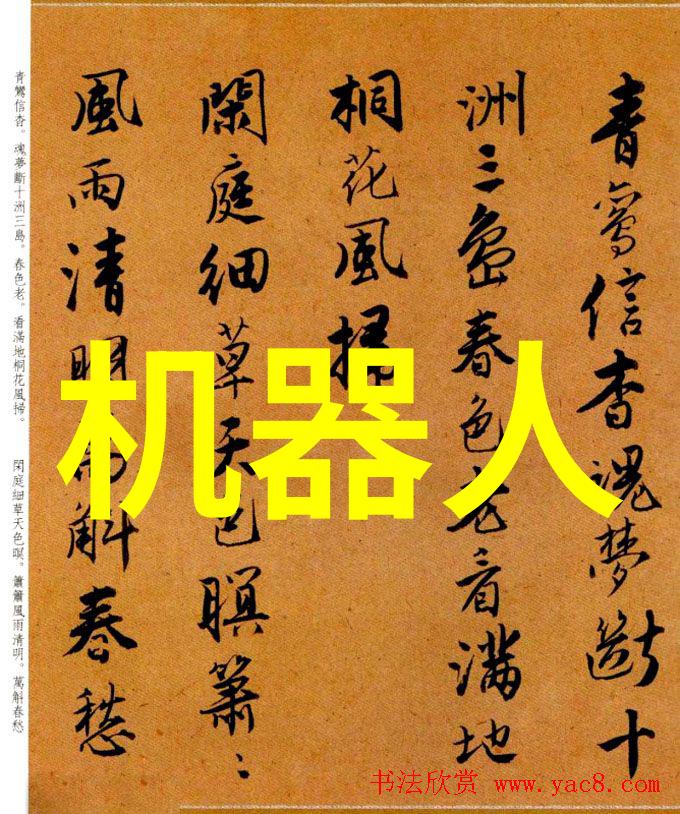 青鸞信杳魂夢斷十
洲三島春色老看滿地
桐花風掃
閑庭細草天色暝簫〻
風雨清明萬斛春愁
青鸞信杳。魂夢斷十洲三島。春色老。看滿地桐花風掃。 閑庭細草天色暝。簫簫風雨清明。萬斛春愁
机器人
书法欣赏 www.yac8.com